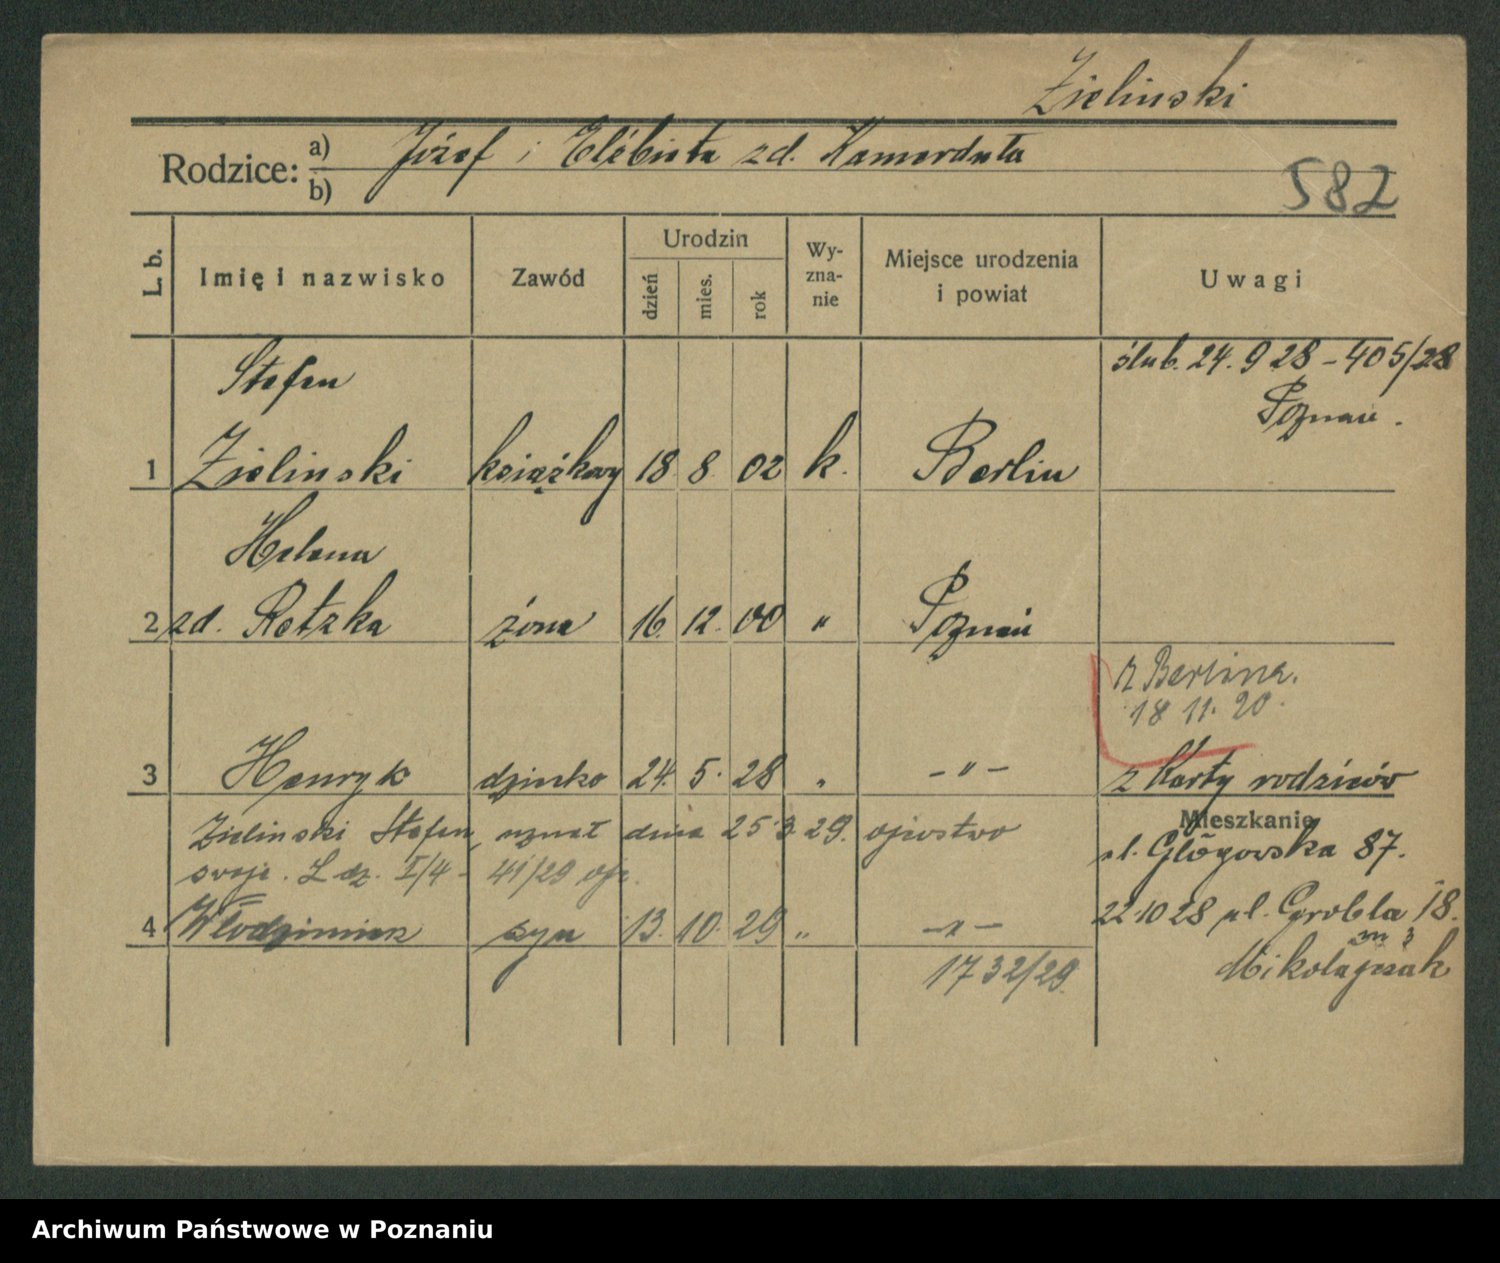 Zielinski
Rodzice: a) b) Józef i Elżbieta zd. Kamerduła
582
L. b. Imię i nazwisko Zawód Urodzin dzień mies. rok Wy-zna-nie Miejsce urodzenia i powiat Uwagi
ślub. 24. 9 28 - 405/28
Poznań.
Stefan
1 Zielinski książkowy 18 8 02 k. Berlin
Helena
2 zd. Retzka żona 16. 12. 00 " Poznań
z Berlina.
18 11. 20.
3 Henryk dziecko 24. 5. 28 " -"- z Karty rodziców
Mieszkanie
Zielinski Stefan, uznał dnia 25 3 29. ojcostwo
swoje. L dz. I/4 - 41/29
ul. Głogowska 87.
4 Włodzimierz syn 13. 10. 29 " -"-
22 10 28 ul. Grobla 18.
m 3
Mikołajczak
1732/29